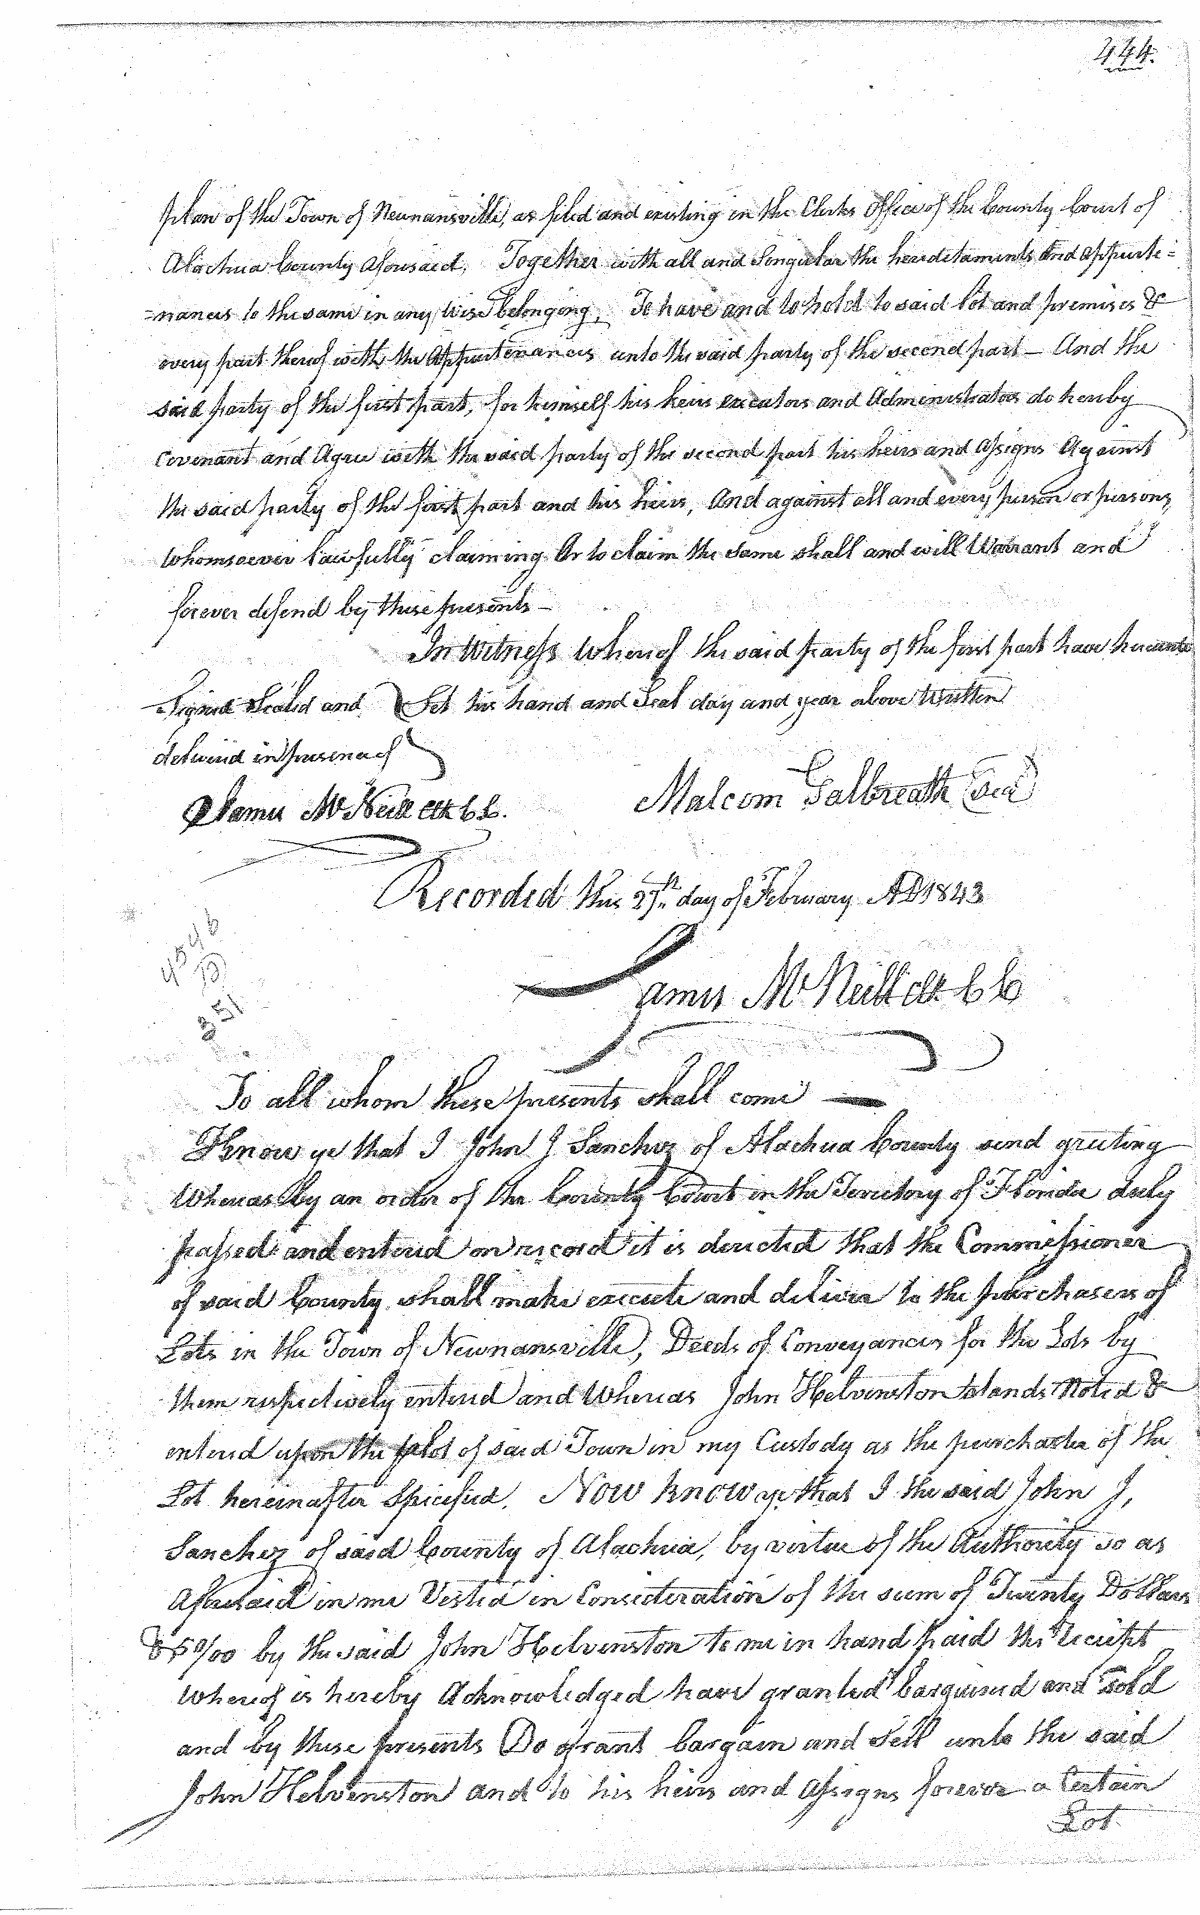 444.
plan of the Town of Newnansville, as filed and existing in the Clerks Office of the County Court of
Alachua County Aforesaid, Together with all and Singular the hereditaments and appurte=
=nances to the same in any wise belonging, To have and to hold to said lot and premises &
every part thereof with the Appurtenances unto the said party of the second part — And the
said party of the first part, for himself his heirs executors and Administrators do hereby
covenant and Agree with the said party of the second part his heirs and Assigns Against
the said party of the first part and his heirs, And against all and every person or persons,
Whomsoever lawfully claiming Or to claim the same shall and will Warrant and
forever defend by these presents —
In Witness Whereof the said party of the first part have hereunto
Signed Sealed and Set his hand and Seal day and year above Written
delivered in presence of
James McNeill Clk C C.
Malcom Galbreath Seal
Recorded this 27th day of February AD 1843
4546
351
James McNeill Clk C C
To all whom these presents shall come —
Know ye that I John J Sanchez of Alachua County send greeting
Whereas by an order of the County Court in the Territory of Florida duly
passed and entered on record it is directed that the Commissioner
of said County shall make execute and deliver to the purchasers of
Lots in the Town of Newnansville, Deeds of Conveyances for the Lots by
them respectively entered and Whereas John Helvenston stands Noted &
entered upon the plot of said Town in my Custody as the purchaser of the
Lot hereinafter Specified. Now know ye that I the said John J,
Sanchez of said County of Alachua, by virtue of the Authority so as
Aforesaid in me Vested in Consideration of the sum of Twenty Dollars
& 50/00 by the said John Helvenston to me in hand paid the receipt
Whereof is hereby Acknowledged have granted bargained and sold
and by these presents Do grant bargain and Sell unto the said
John Helvenston and to his heirs and Assigns forever a Certain
Lot